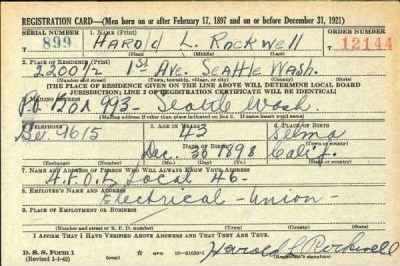 REGISTRATION CARD—(Men born on or after February 17, 1897 and on or before December 31, 1921)
SERIAL NUMBER 1. NAME (Print) ORDER NUMBER
899 Harold L. Rockwell 12144
(First) (Middle) (Last)
2. PLACE OF RESIDENCE (Print)
2200 1/2 1st Ave. Seattle Wash.
(Number and street) (Town, township, village, or city) (County) (State)
[THE PLACE OF RESIDENCE GIVEN ON THE LINE ABOVE WILL DETERMINE LOCAL BOARD
JURISDICTION; LINE 2 OF REGISTRATION CERTIFICATE WILL BE IDENTICAL]
3. MAILING ADDRESS
P.O. Box 993 - Seattle Wash.
[Mailing address if other than place indicated on line 2. If same insert word same]
4. TELEPHONE 5. AGE IN YEARS 6. PLACE OF BIRTH
43 Selma
9615 DATE OF BIRTH
Dec. 30 1898 Calif.
(Exchange) (Number) (Mo.) (Day) (Yr.) (State or country)
7. NAME AND ADDRESS OF PERSON WHO WILL ALWAYS KNOW YOUR ADDRESS
A.F.O.L. Local 46-
8. EMPLOYER'S NAME AND ADDRESS
Electrical - Union -
9. PLACE OF EMPLOYMENT OR BUSINESS
(Number and street or R. F. D. number) (Town) (County) (State)
I AFFIRM THAT I HAVE VERIFIED ABOVE ANSWERS AND THAT THEY ARE TRUE.
D. S. S. Form 1
(Revised 1-1-42) Harold L Rockwell